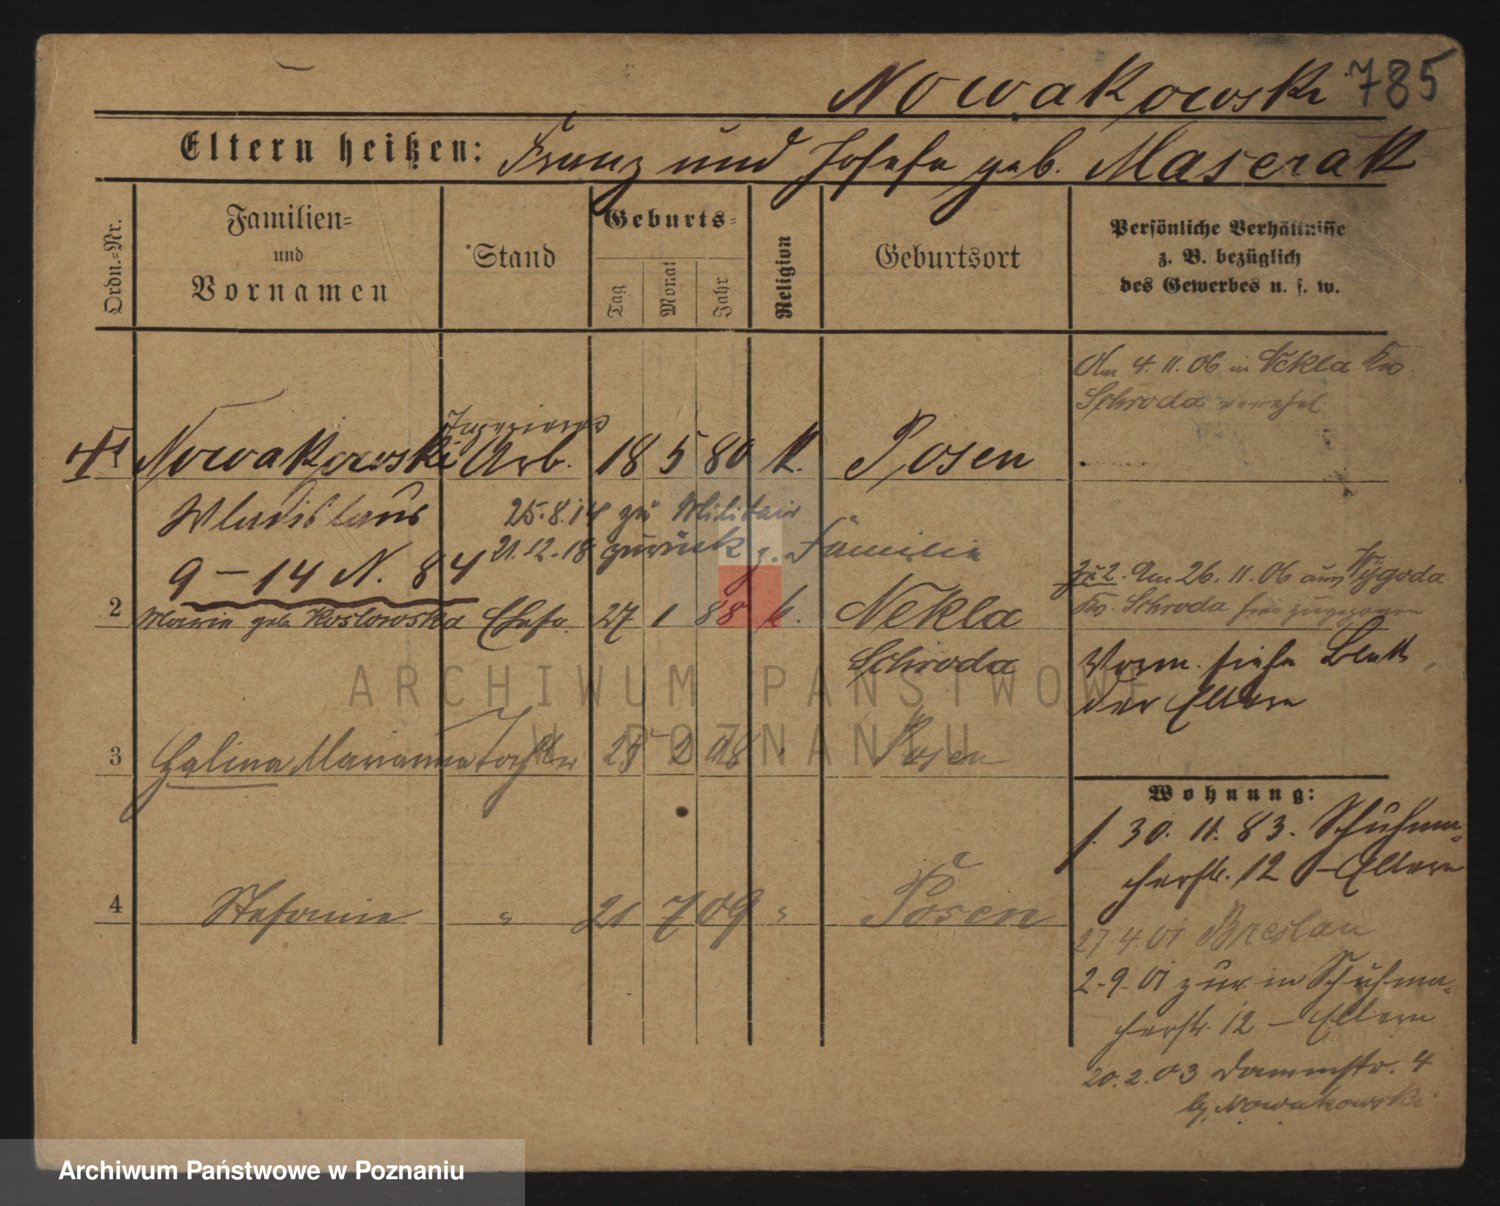 Nowakowski 785
Eltern heißen: Franz und Josefa geb. Maserak
Ordn.-Nr.
Familien-
und
Vornamen
Stand
Geburts-
Tag
Monat
Jahr
Religion
Geburtsort
Persönliche Verhältnisse
z. B. bezüglich
des Gewerbes u. s. w.
Am 4. 11. 06 in Nekla Krs.
Schroda verehel.
1 Nowakowski Arb. 18 5 80 k. Posen
Wladislaus
25.8.14 zu Militair
21.12.18 zurück z. Familie
9 – 14 N. 84
2 Marie geb. Koslowska Ehefr. 27 1 88 k. Nekla
Schroda
Zu 2. Am 26. 11. 06 aus Wygoda
Krs. Schroda hier zugezogen
Vorm. siehe Blatt
der Eltern
3 Halina Marianna Tochter 25 2 08 " Posen
Wohnung:
30. 11. 83. Schuhma-
cherstr. 12 – Eltern
4 Stefanie " 21 7 09 " Posen
27 4 01 Breslau
2.9.01 zur. in Schuhma-
cherstr. 12 – Eltern
20.2.03 Dammstr. 4
b. Nowakowski
ARCHIWUM PAŃSTWOWE
W POZNANIU
Archiwum Państwowe w Poznaniu